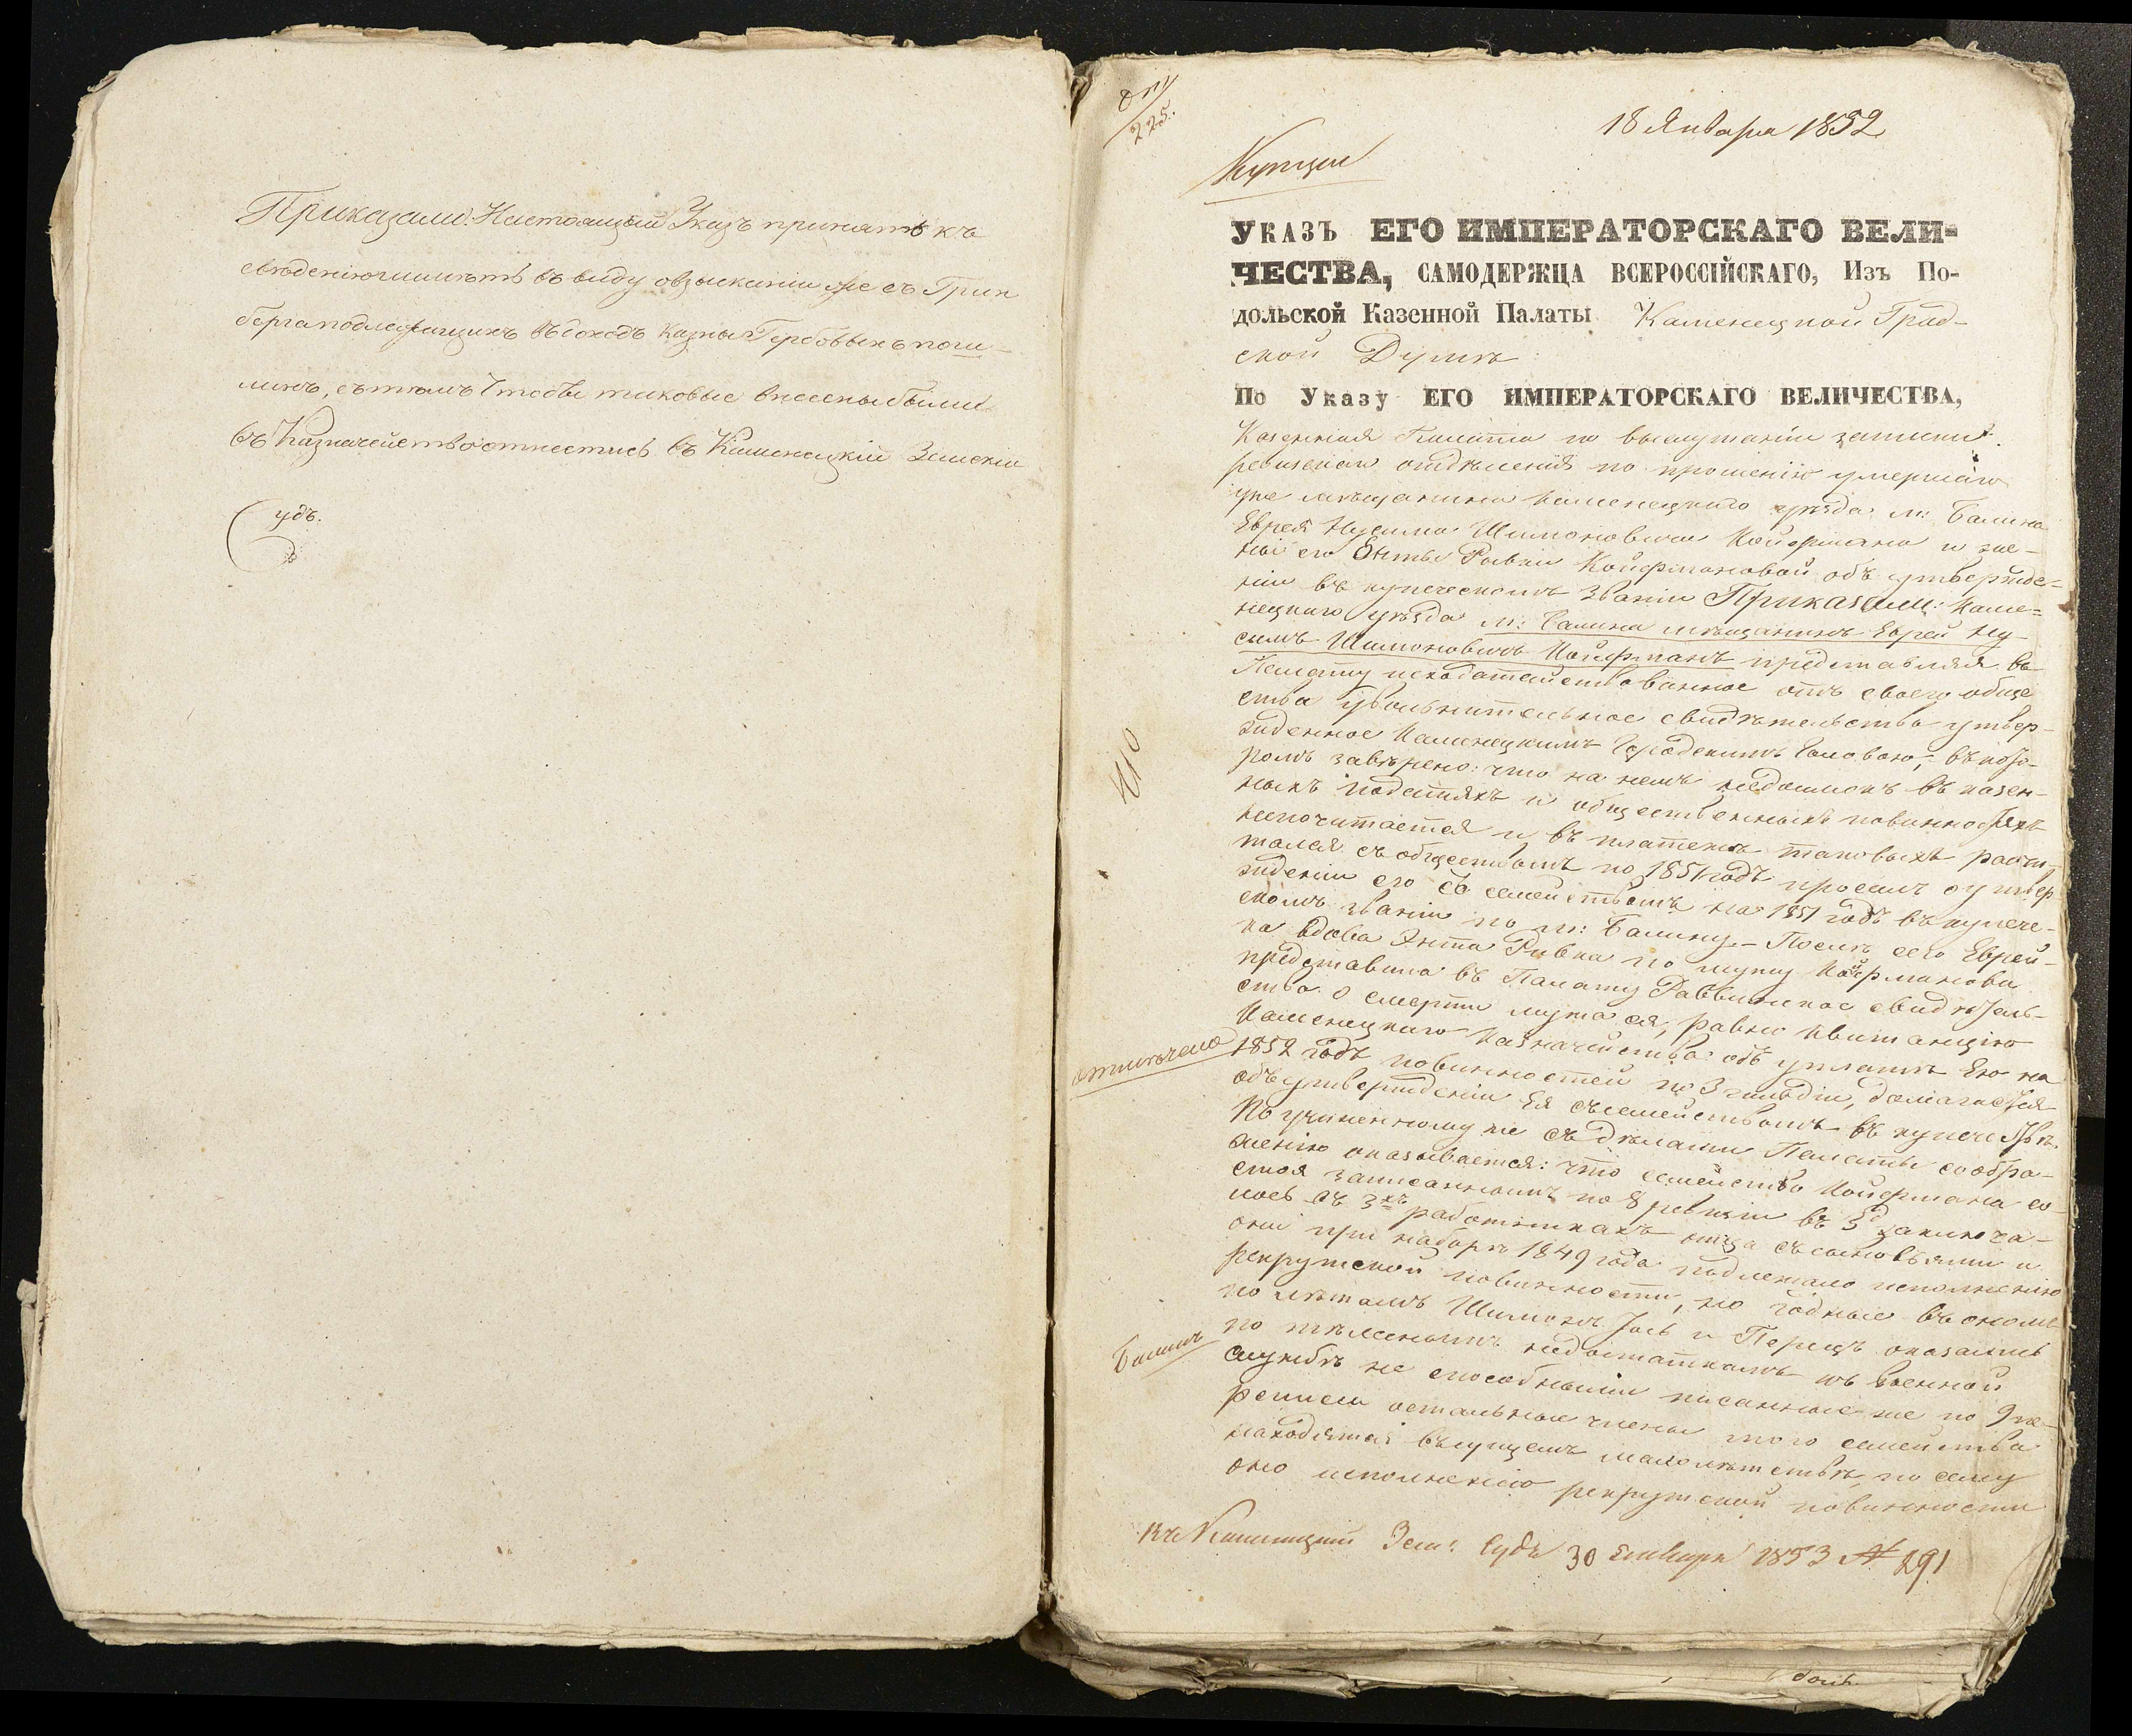 Приказали: Настоящій Указъ принять къ
свѣденію и имѣть въ виду о взысканіи же съ Грин
берга подлежащихъ въ доходъ казны Гербовыхъ пош-
линъ, съ тѣмъ чтобы таковые внесены были
въ Казначейство отнестись въ Каменецкій Земскій
Судъ.
225.
18 Января 1852
Купцы
Указъ ЕГО ИМПЕРАТОРСКАГО ВЕЛИ-
ЧЕСТВА, САМОДЕРЖЦА ВСЕРОССІЙСКАГО, Изъ По-
дольской Казенной Палаты Каменецкой Град-
ской Думѣ
По Указу ЕГО ИМПЕРАТОРСКАГО ВЕЛИЧЕСТВА,
Казенная Палата по выслушаніи записки
ревизскаго отдѣленія по прошенію умершаго
уже мѣщанина Каменецкаго уѣзда м: Балина
Еврея Нусима Шимоновича Койфмана и же-
ны его Энты Ривки Койфмановой объ утвержде-
ніи въ купеческомъ званіи Приказали: Каме-
нецкаго уѣзда м: Балина мѣщанинъ Еврей Ну-
симъ Шимоновичъ Койфманъ представляя въ
Палату исходатайствованное отъ своего обще
ства увольнительное свидѣтельство утвер-
жденное Каменецкимъ Городскимъ Головою, въ кото-
ромъ завѣрено: что на немъ недоимокъ въ казен-
ныхъ податяхъ и общественныхъ повинностяхъ
не почитается и въ платежѣ таковыхъ расчи-
тался съ обществомъ по 1851 годъ просилъ о утвер
жденіи его съ семействомъ на 1851 годъ въ купече-
скомъ званіи по м: Балину. - Послѣ сего Еврей-
ка вдова Энта Ривка по мужу Койфманова
представила въ Палату Раввинское свидѣтель-
ство о смерти мужа ея, равно квитанцію
Каменецкаго Казначейства объ уплатѣ Ею на
1852 годъ повинностей по 3 гильдіи, домагается
объ утвержденіи Ея съ семействомъ въ купечествѣ.
По учиненному же съ дѣлами Палаты сообра-
женію оказывается: что семейство Койфмана со-
стоя записаннымъ по 8 ревизіи въ 3 заключа-
лось въ 3хъ работникахъ отца съ сыновьями и
они при наборѣ 1849 года подлежало исполненію
рекрутской повинности, но годные въ ономъ
по лѣтамъ Шимонъ Іось и Перецъ оказались
по тѣлеснымъ недостаткамъ къ военной
службѣ не способными писанные же по 9 пе-
реписи остальные члены того семейства
находятся въ сущемъ малолѣтствѣ, по сему
оно исполненію рекрутской повинности
отмѣчено
Балинъ
Въ Каменецкій Зем: Судъ 30 Января 1853 № 291